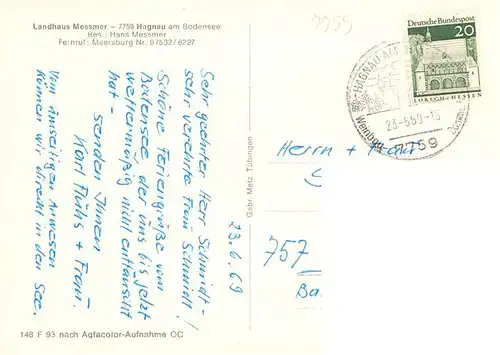 Landhaus Messmer – 7759 Hagnau am Bodensee
Bes.: Hans Messmer
Fernruf: Meersburg Nr. 07532/6227
7759
Deutsche Bundespost
20
LORSCH/HESSEN
HAGNAU AM
23-6.69-15
7759
23.6.69
Sehr geehrter Herr Schmidt –
sehr verehrte Frau Schmidt!
Schöne Feriengrüße vom
Bodensee, der uns bis jetzt
wettermäßig nicht enttäuscht
hat –
senden Ihnen
Karl Flühs + Frau.
Vom diesseitigen Anwesen
können wir direkt in den See.
Gebr. Metz, Tübingen
Herrn + Frau
757
Ba
148 F 93 nach Agfacolor-Aufnahme OC